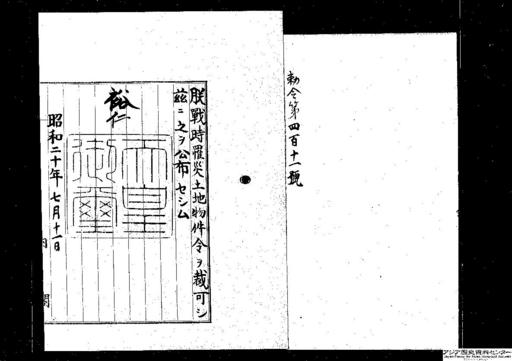 勅令第四百十一號
朕戰時罹災土地物件令ヲ裁可シ
茲ニ之ヲ公布セシム
裕仁
天皇御璽
昭和二十年七月十一日
内閣
アジア歴史資料センター